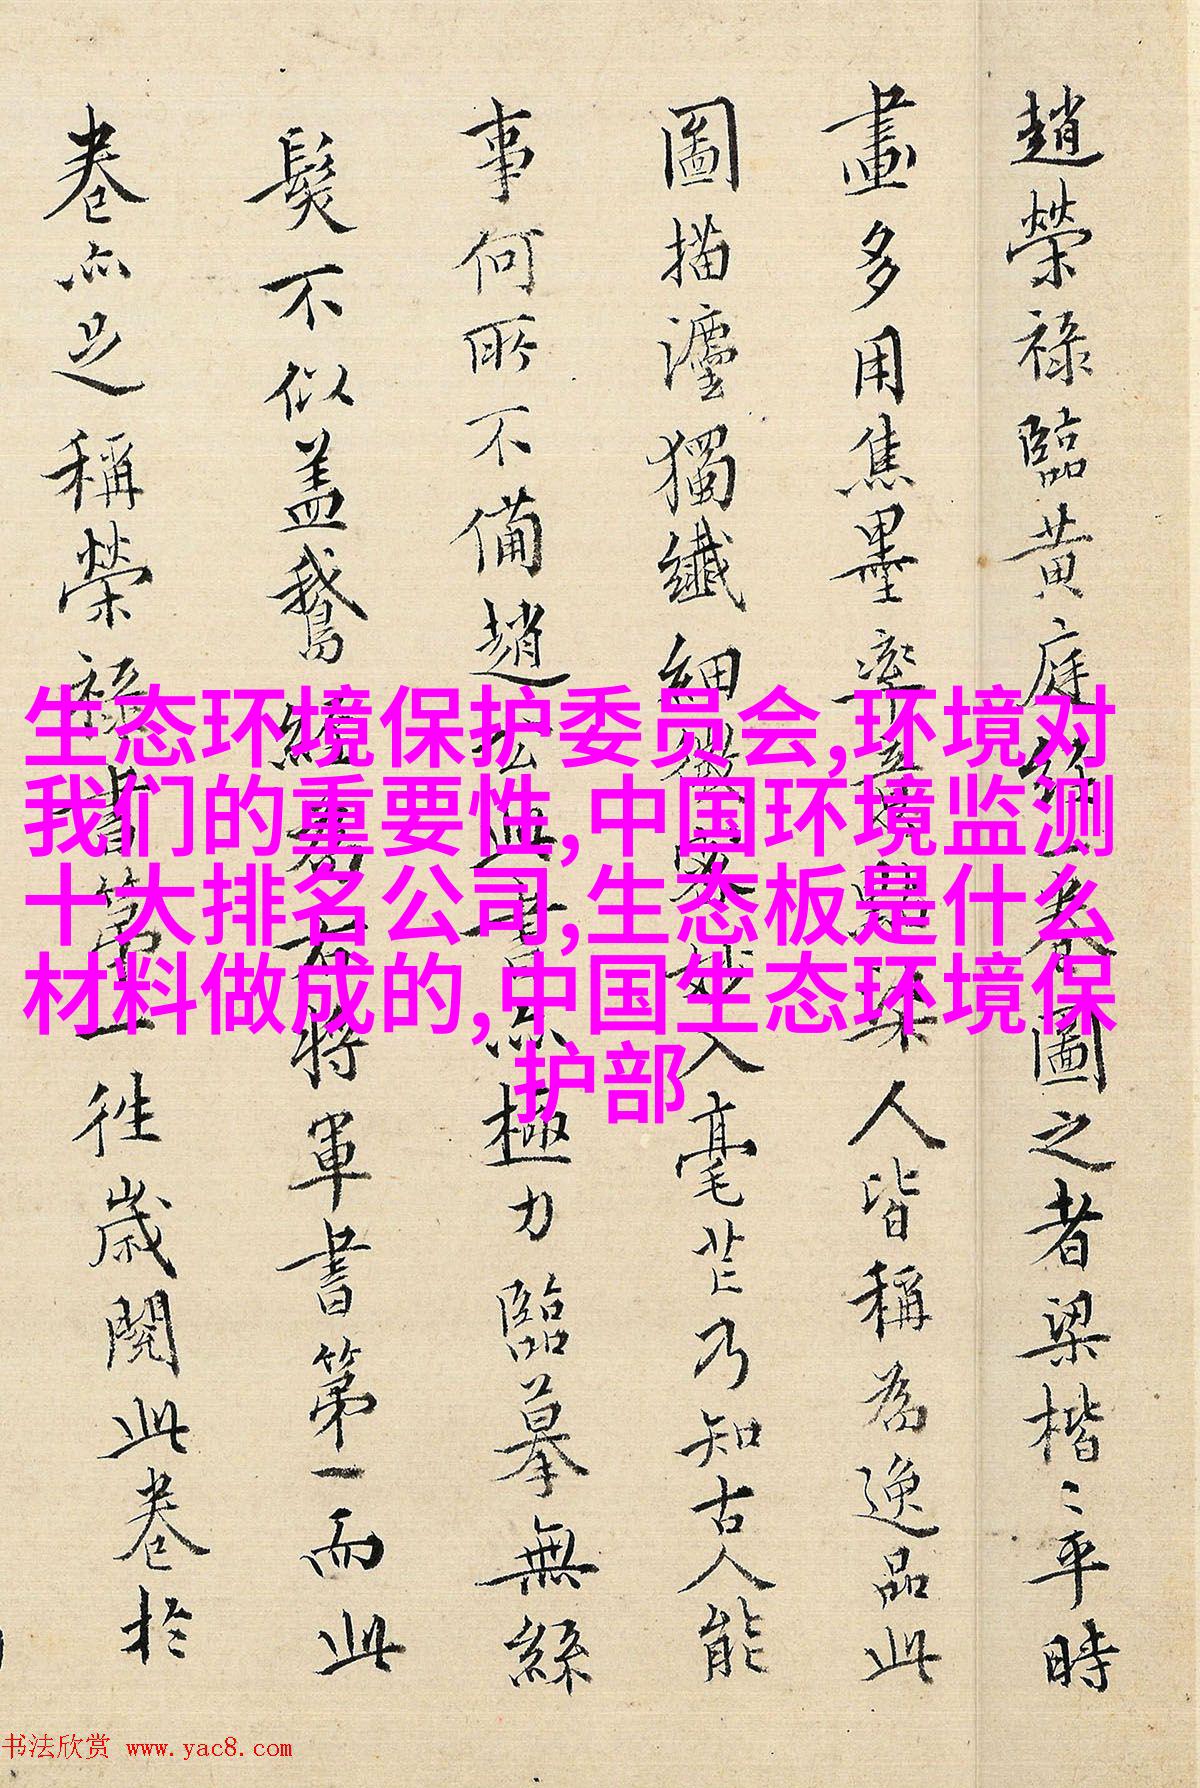 趙榮祿臨黃庭經卷圖之者梁楷〻平時
畫多用焦墨率染人皆稱為逸品此
圖描灋獨纖細微密妙入毫芒乃知古人能
事何所不備趙書亦極力臨摹無絲
髮不似盖鵞經為右將軍書第一而此
卷亦足稱榮祿書第一往歲閱此卷於
生态环境保护委员会,环境对
我们的重要性,中国环境监测
十大排名公司,生态板是什么
材料做成的,中国生态环境保
护部
书法欣赏 www.yac8.com